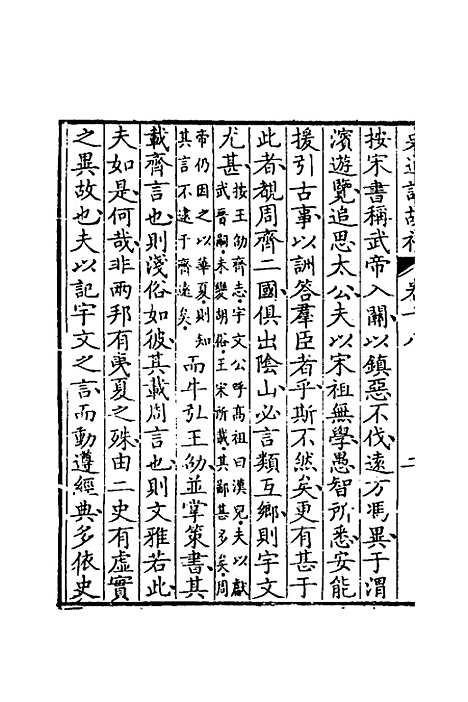 史通訓故補 卷十八 二
按宋書稱武帝入關以鎮惡不伐遠方馮異于渭
濱遊覽追思太公夫以宋祖無學愚智所悉安能
援引古事以詶答羣臣者乎斯不然矣更有甚于
此者覩周齊二國俱出陰山必言類互鄉則宇文
尤甚
按王劭齊志宇文公呼高祖曰漢兒夫以獻
武晉嗣未變胡俗王宋所載其鄙甚多矣周
帝仍因之以華夏則知
其言不逮于齊遠矣
而牛引王劭並掌策書其
載齊言也則淺俗如彼其載周言也則文雅若此
夫如是何哉非兩邦有夷夏之殊由二史有虛實
之異故也夫以記宇文之言而動遵經典多依史